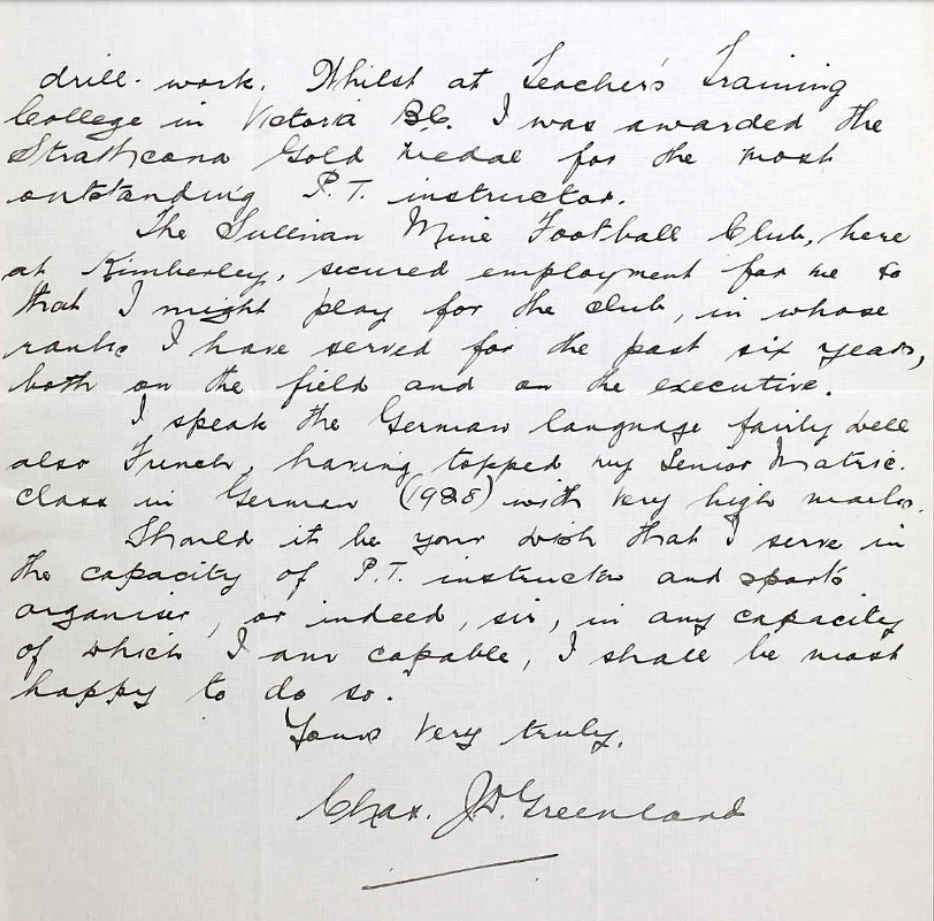 drill work. Whilst at Teacher's Training
College in Victoria B.C. I was awarded the
Strathcona Gold Medal for the most
outstanding P.T. instructor.
The Sullivan Mine Football Club, here
at Kimberley, secured employment for me so
that I might play for the club, in whose
ranks I have served for the past six years,
both on the field and on the executive.
I speak the German language fairly well
also French, having topped my Senior Matric.
class in German (1928) with very high marks.
Should it be your wish that I serve in
the capacity of P.T. instructor and sports
organiser, or indeed, sir, in any capacity
of which I am capable, I shall be most
happy to do so.
Yours very truly,
Chas. J. D. Greenland